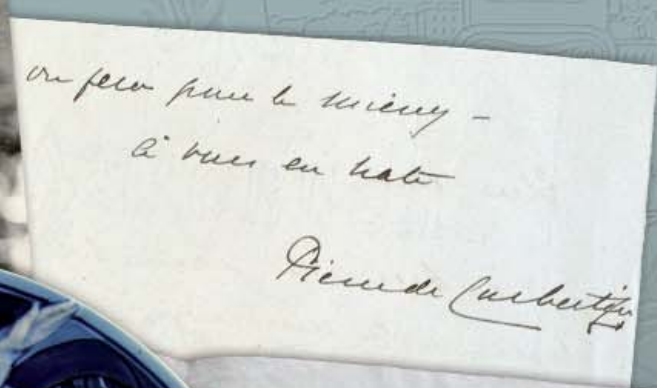 on fera pour le mieux –
à vous en hate
Pierre de Coubertin